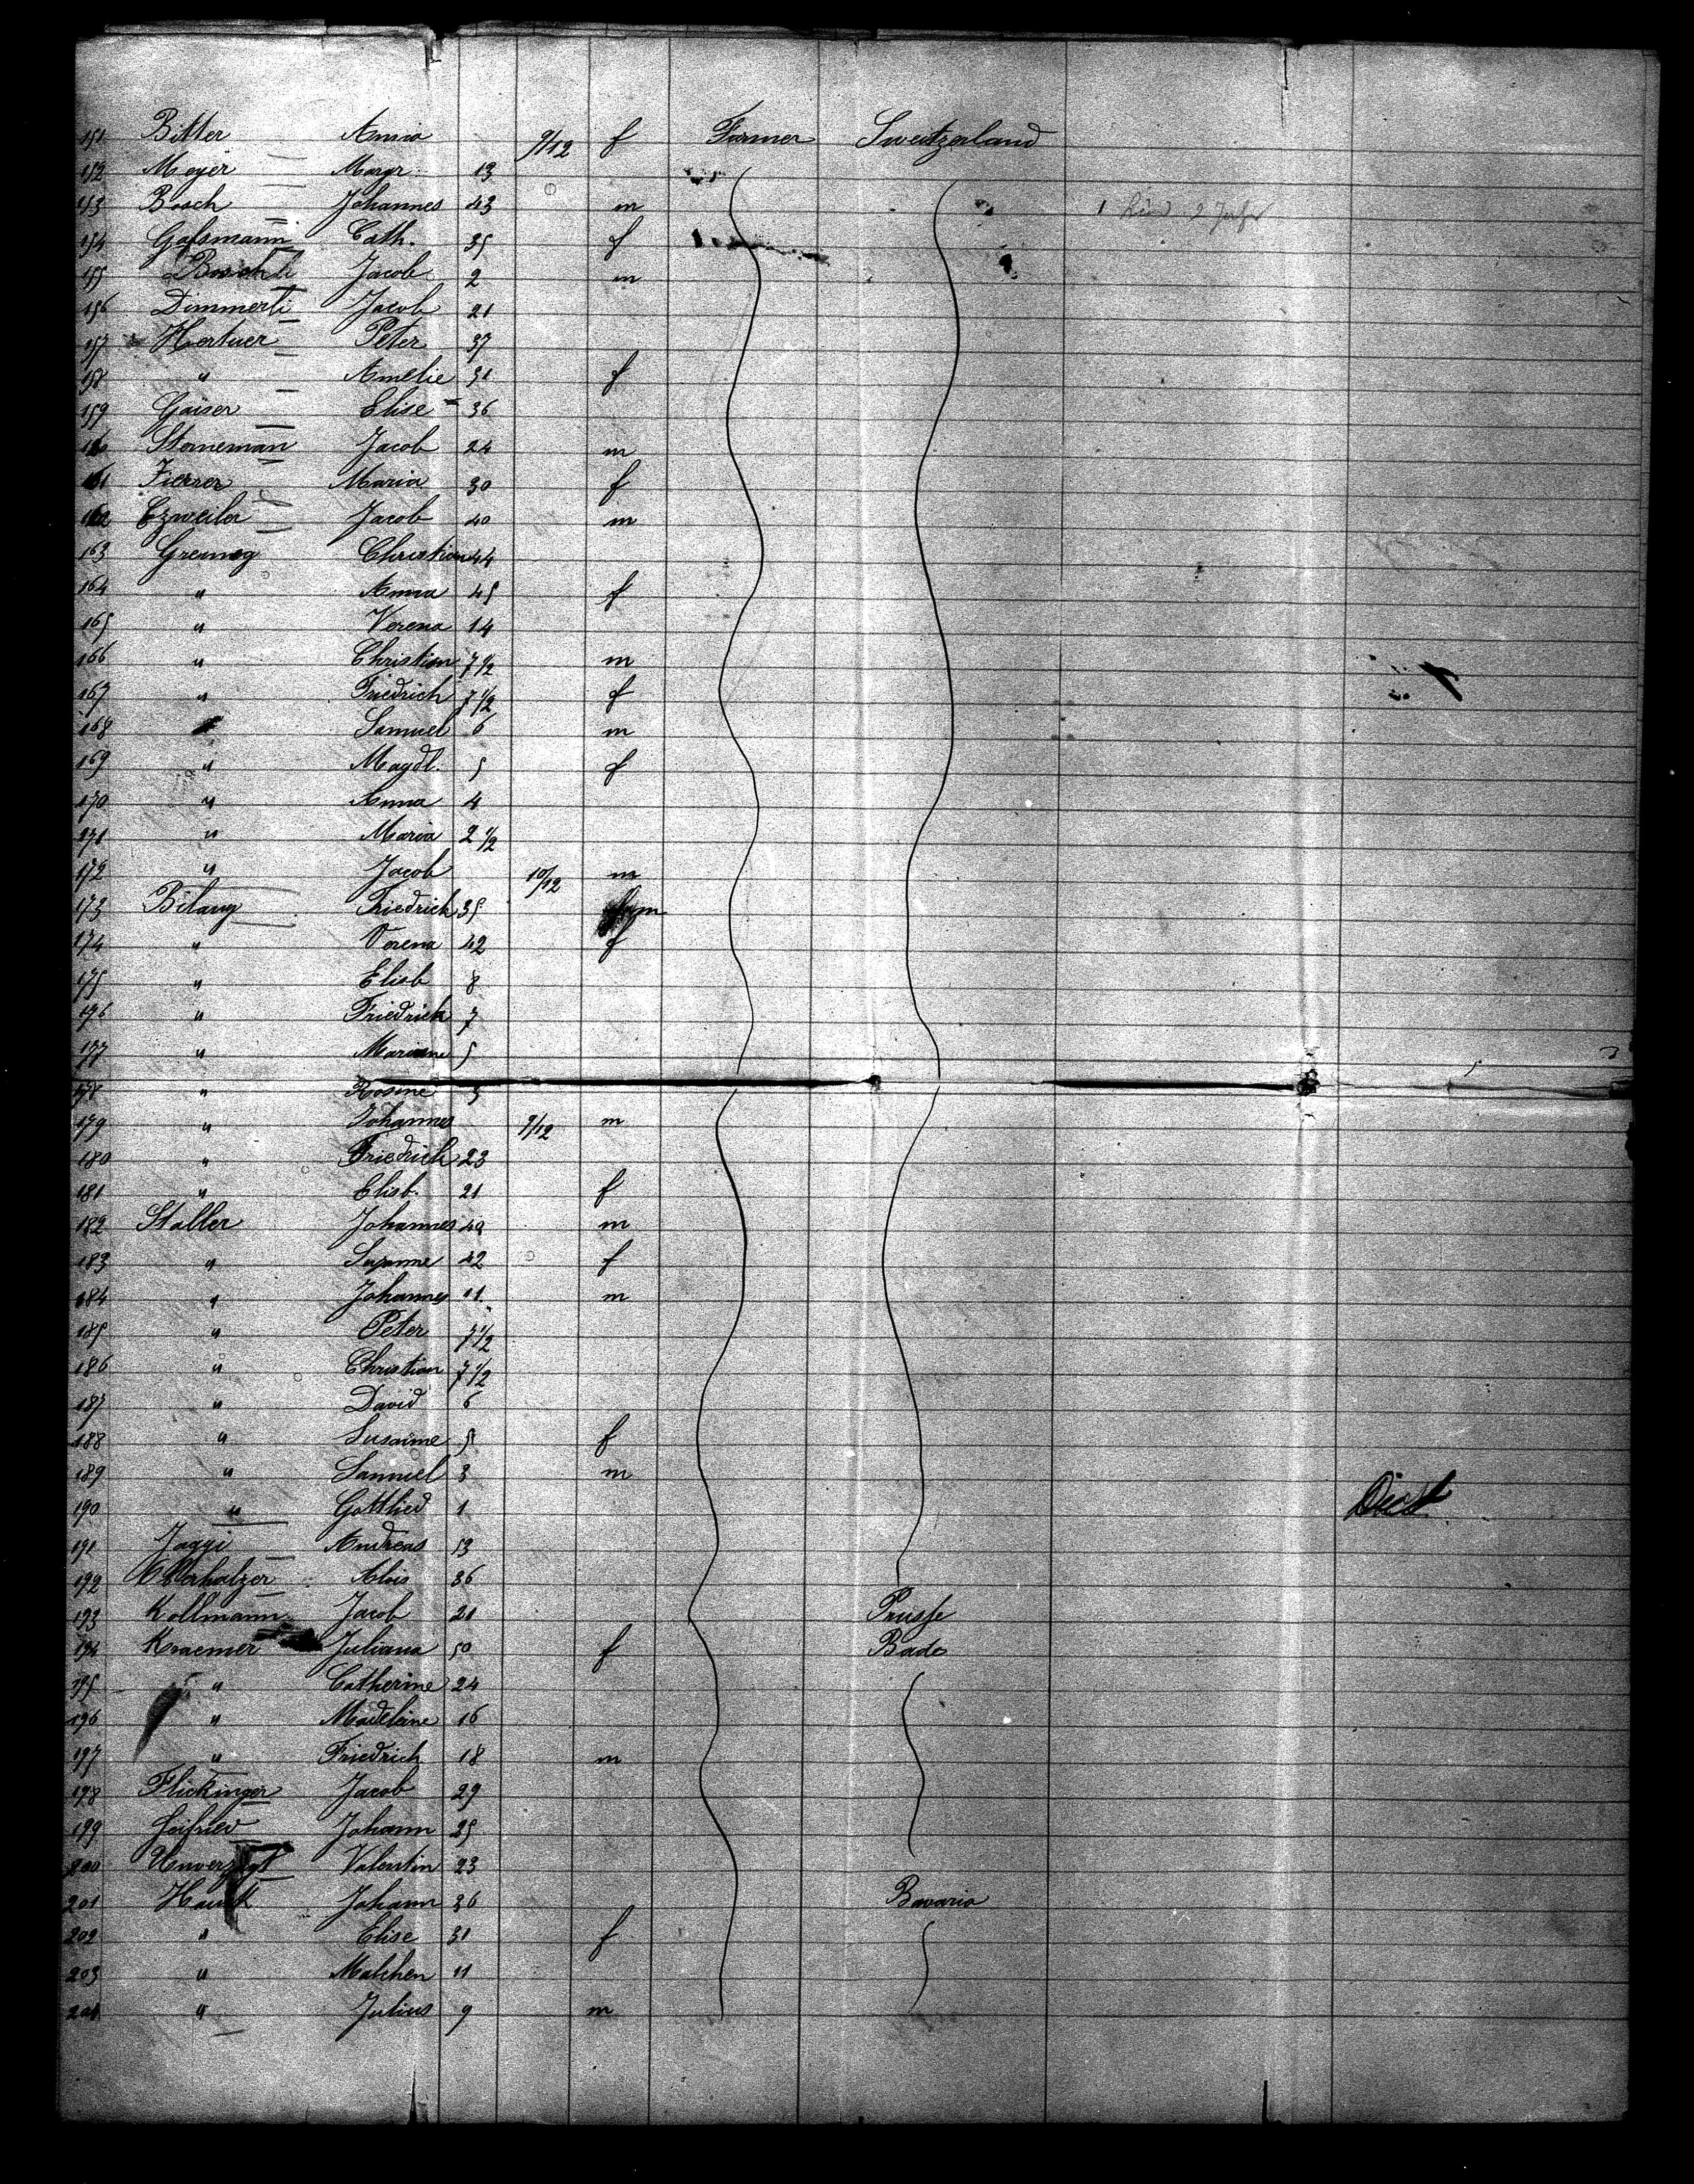 151 Bitter Anna 9/12 f Farmer Sweitzerland
152 Meyer Margr. 13
153 Bosch Johannes 43 m 1 Kind 2 Jahr
154 Gassmann Cath. 35 f
155 Jacob 2 m
156 Dimmerli Jacob 21
157 Hertuer Peter 37
158 " Amelie 31 f
159 Gaiser Elise 36
160 Storneman Jacob 24 m
161 Fierrer Maria 30 f
162 Ezweiler Jacob 40 m
163 Christian 44
164 " Anna 45 f
165 " Verena 14
166 " Christian 7 1/2 m
167 " Friedrich 7 1/2 f
168 " Samuel 6 m
169 " Magdl. 5 f
170 " Anna 4
171 " Maria 2 1/2
172 " Jacob 10/12 m
173 Bilang Friedrich 35 m
174 " Verena 42 f
175 " Elisb 8
176 " Friedrich 7
177 " Mariane 5
178 " Rosine 3
179 " Johannes 9/12 m
180 " Friedrich 23
181 " Elisb. 21 f
182 Staller Johannes 40 m
183 " Susanne 42 f
184 " Johannes 11 m
185 " Peter 7 1/2
186 " Christian 7 1/2
187 " David 6
188 " Susanne 5 f
189 " Samuel 3 m
190 " Gottlied 1 Died
191 Jaggi Andreas 53
192 Oberholzer Alois 36
193 Kollmann Jacob 21 Prusse
194 Kraemer Juliana 50 f Bade
195 " Catherine 24
196 " Madeleine 16
197 " Friedrich 18 m
198 Flickinger Jacob 29
199 Seifried Johann 25
200 Unverzagt Valentin 23
201 Hauck Johann 36 Bavaria
202 " Elise 31 f
203 " Malchen 11
204 " Julius 9 m